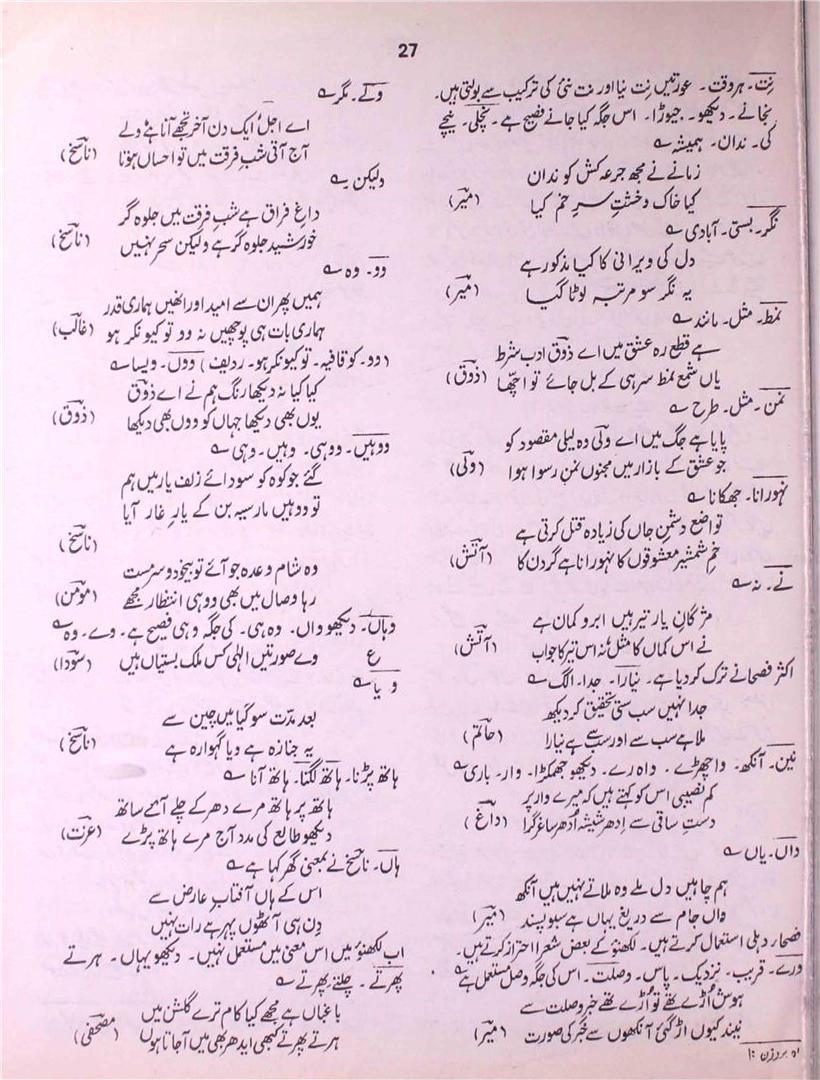 27
نِت۔ ہروقت۔ عورتیں نِت نیا اور نت نئی کی ترکیب سے بولتی ہیں۔
نجانے۔ دیکھو۔ جیوڑا۔ اس جگہ کیا جانے فصیح ہے۔ نچلی۔ نیچے
کی۔ ندان۔ ہمیشہ ؎
زمانے نے مجھ جرعہ کش کو ندان
کیا خاک و خشتِ سرِ خم کیا (میر)
نگر۔ بستی۔ آبادی ؎
دل کی ویرانی کا کیا مذکور ہے
یہ نگر سو مرتبہ لوٹا گیا (میر)
نمط۔ مثل۔ مانند ؎
ہے قطع رہ عشق میں اے ذوق ادب شرط
یاں شمع نمط سر ہی کے بل جائے تو اچھا (ذوق)
نمن۔ مثل۔ طرح ؎
پایا ہے جگ میں اے ولی وہ لیلی مقصود کو
جو عشق کے بازار میں مجنوں نمن رسوا ہوا (ولی)
نہورانا۔ جھکانا ؎
تواضع دشمنِ جاں کی زیادہ قتل کرتی ہے
خمِ شمشیر معشوقوں کا نہورانا ہے گردن کا (آتش)
نے۔ نہ ؎
مژگانِ یار تیر ہیں ابرو کمان ہے
نے اس کماں کا مثل نہ اس تیر کا جواب (آتش)
اکثر فصحا نے ترک کر دیا ہے۔ نیارا۔ جدا۔ الگ ؎
جدا نہیں سب ستی تحقیق کر دیکھ
ملا ہے سب سے اور سب سے ہے نیارا (حاتم)
نین۔ آنکھ۔ واچھڑے۔ واہ رے۔ دیکھو جھمکڑا۔ وار۔ باری ؎
کم نصیبی اس کو کہتے ہیں کہ میرے وار پر
دستِ ساقی سے اِدھر شیشہ اُدھر ساغر گرا (داغ)
واں۔ یاں ؎
ہم چاہیں دل ملے وہ ملاتے نہیں ہیں آنکھ
واں جام سے دریغ یہاں ہے سبو پسند (میر)
فصحاء دہلی استعمال کرتے ہیں۔ لکھنؤ کے بعض شعرا احتراز کرتے ہیں۔
ورے۔ قریب۔ نزدیک۔ پاس۔ وصلت۔ اس کی جگہ وصل مستعمل ہے ؎
ہوش اُڑے تھے تو اُڑے تھے خبرِ وصلت سے
نیند کیوں اڑ گئی آنکھوں سے فجر کی صورت (میر)
بروزن
ولے۔ مگر ؎
اے اجل ایک دن آخر تجھے آنا ہے ولے
آج آتی شبِ فرقت میں تو احساں ہوتا (ناسخ)
ولیکن ؎
داغِ فراق ہے شبِ فرقت میں جلوہ گر
خورشید جلوہ گر ہے ولیکن سحر نہیں (ناسخ)
وو۔ وہ ؎
ہمیں پھر ان سے امید اور انھیں ہماری قدر
ہماری بات ہی پوچھیں نہ وو تو کیونکر ہو (غالب)
(وو۔ کو قافیہ۔ تو کیونکر ہو۔ ردیف) ووں۔ ویسا ؎
کیا کیا نہ دیکھا رنگ ہم نے اے ذوق
یوں بھی دیکھا جہاں کو ووں بھی دیکھا (ذوق)
ووہیں۔ ووہی۔ وہیں۔ وہی ؎
گئے جو کوہ کو سودائے زلف یار میں ہم
تو ووہیں مار سیہ بن کے یارِ غار آیا
(ناسخ)
وہ شام وعدہ جو آئے تو بیخود و سرمست
رہا وصال میں بھی ووہی انتظار مجھے (مومن)
وہاں۔ دیکھو واں۔ وہ ہی۔ کی جگہ وہی فصیح ہے۔ وے۔ وہ ؎
ع وے صورتیں الٰہی کس ملک بستیاں ہیں (سودا)
و یا ؎
بعد مدّت سو گیا میں چین سے
یہ جنازہ ہے و یا گہوارہ ہے (ناسخ)
ہاتھ پڑنا۔ ہاتھ لگنا۔ ہاتھ آنا ؎
ہاتھ پر ہاتھ مرے دھر کے چلے آئے ساتھ
دیکھو طالع کی مدد آج مرے ہاتھ پڑے (عزت)
ہاں۔ ناسخ نے بمعنی گھر کہا ہے ؎
اس کے ہاں آفتابِ عارض سے
دِن ہی آٹھوں پہر ہے رات نہیں
اب لکھنؤ میں اس معنی میں مستعمل نہیں۔ دیکھو یہاں۔ ہرتے
پھرتے۔ چلتے پھرتے ؎
باغباں ہے مجھے کیا کام ترے گلشن میں
ہرتے پھرتے کبھی ایدھر بھی میں آجاتا ہوں (مصحفی)